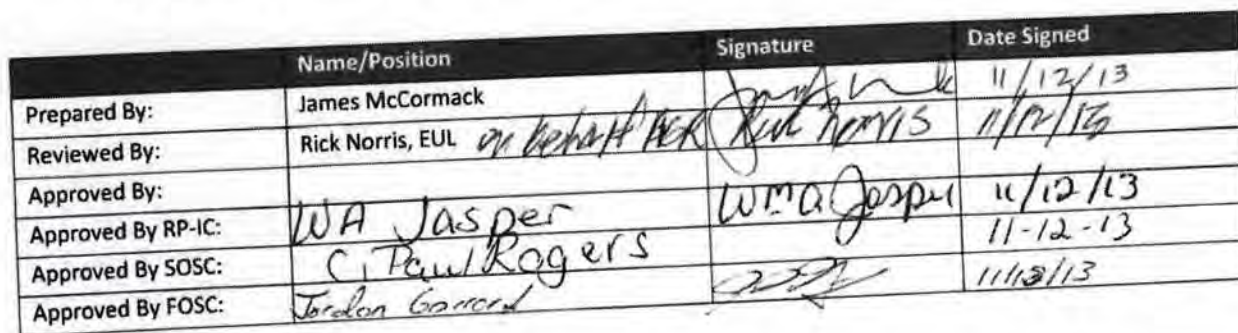 Name/Position Signature Date Signed
Prepared By: James McCormack 11/12/13
Reviewed By: Rick Norris, EUL on behalf Rick Norris 11/12/13
Approved By:
Approved By RP-IC: WA Jasper WMA Jasper 11/12/13
Approved By SOSC: C. Paul Rogers 11-12-13
Approved By FOSC: Jordan Garrard 11/13/13